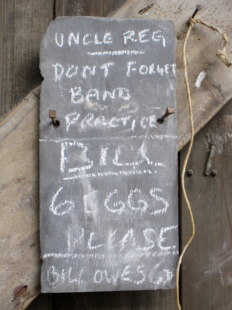 UNCLE REG
DONT FORGET
BAND
PRACTICE
BILL
6 EGGS
PLEASE
BILL OWES 6D